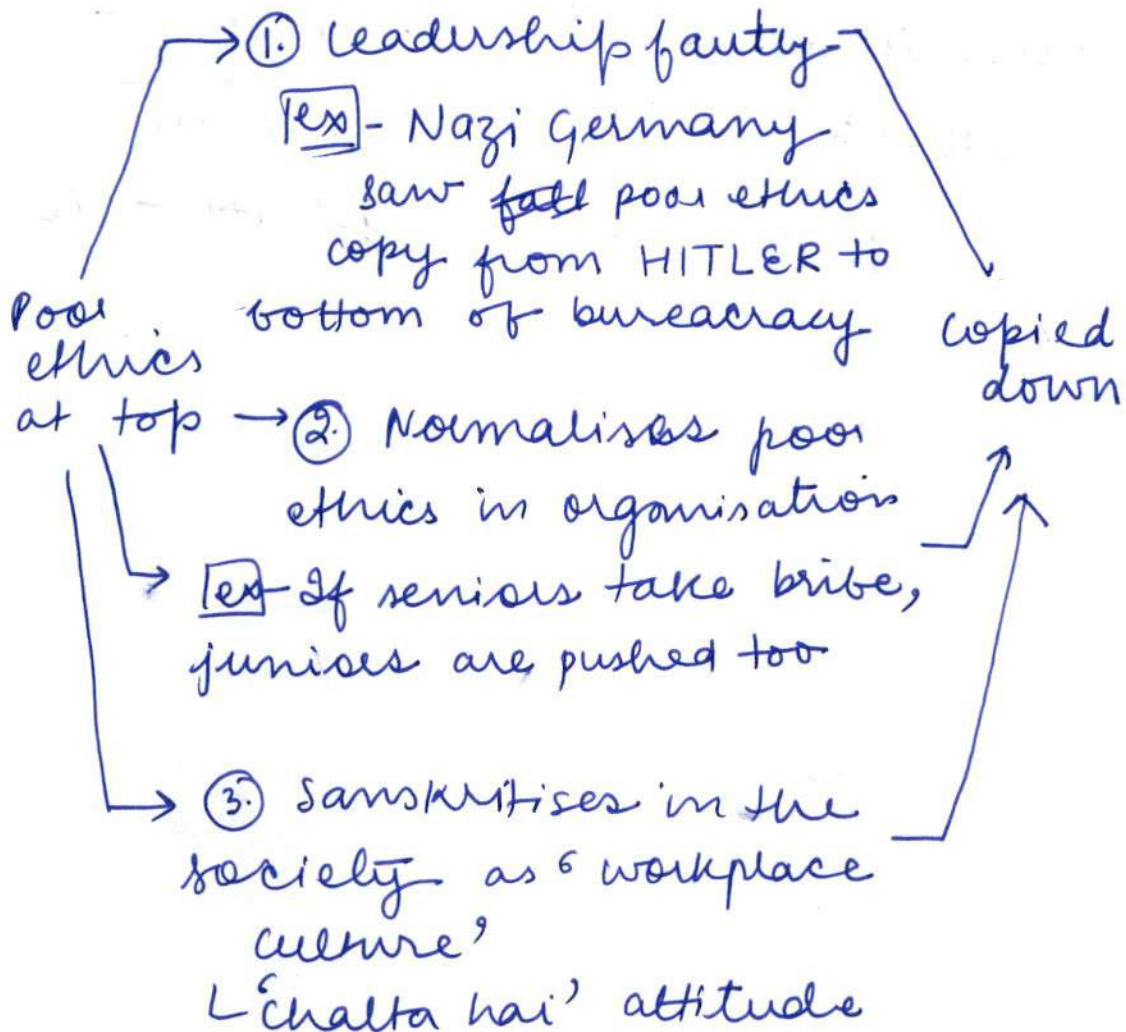 ① Leadership faulty
ex - Nazi Germany
saw fall poor ethics
copy from HITLER to
bottom of bureacracy
Poor
ethics
at top
② Normalises poor
ethics in organisation
ex - If seniors take bribe,
juniors are pushed too
③ Sanskritises in the
society as 'workplace
culture'
'chalta hai' attitude
copied
down